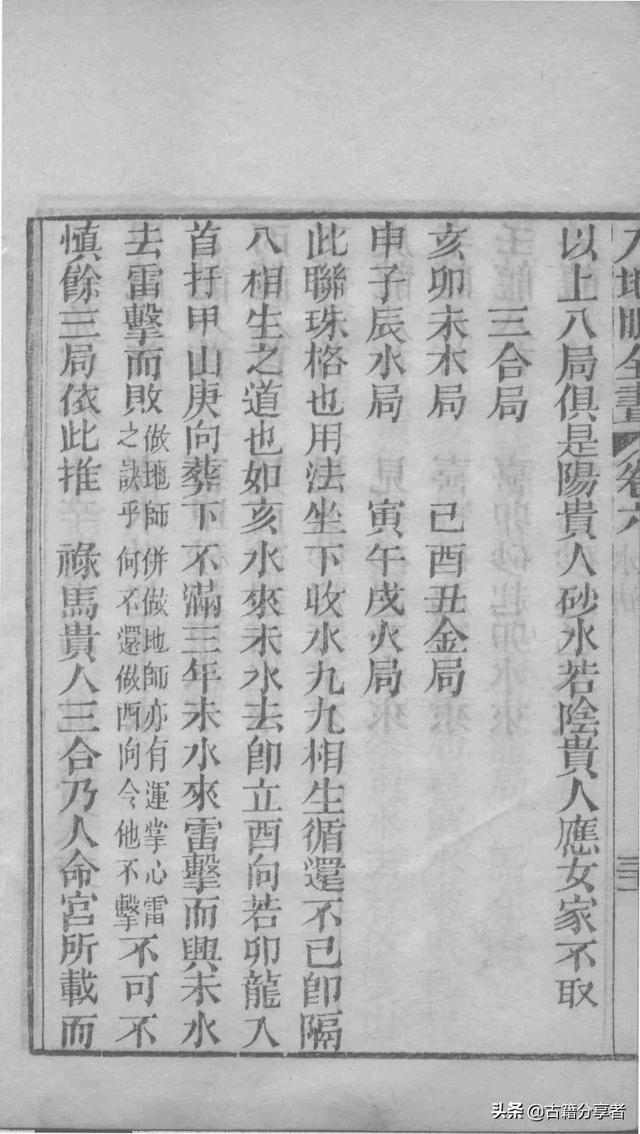 地眼全書 卷六
以上八局俱是陽貴人砂水若陰貴人應女家不取
三合局
亥卯未木局 巳酉丑金局
申子辰水局 寅午戌火局
此聯珠格也用法坐下收水九九相生循還不已卽隔
八相生之道也如亥水來未水去卽立酉向若卯龍入
首扦甲山庚向葬下不滿三年未水來雷擊而興未水
去雷擊而敗做地師併做地師亦有運掌心雷之訣乎何不還做酉向令他不擊不可不
慎餘三局依此推 祿馬貴人三合乃人命宮所載而
头条 @古籍分享者